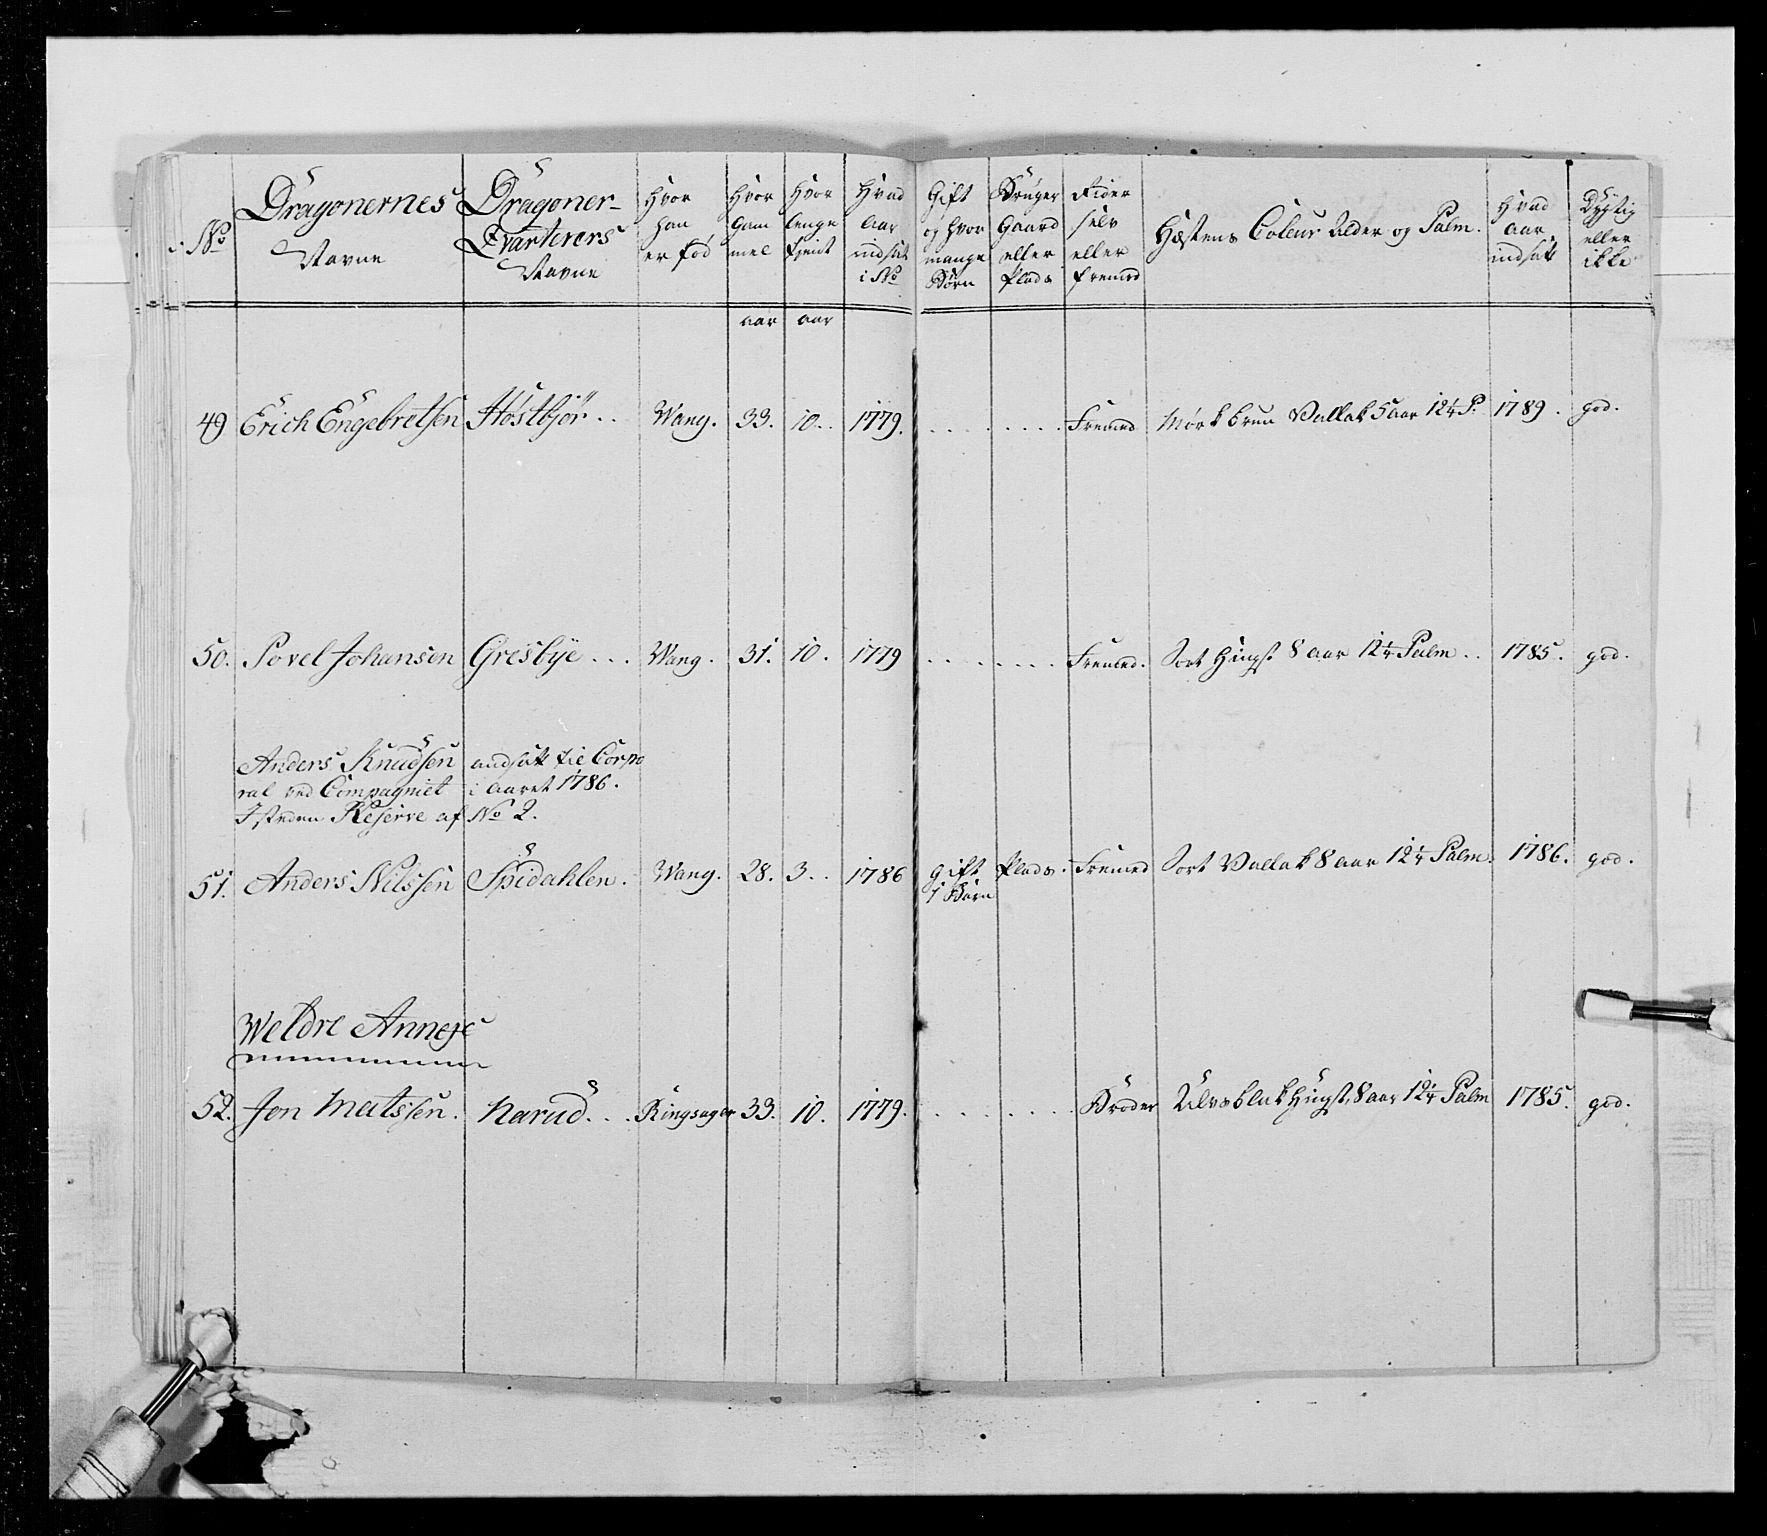 No
Dragonernes Navne
Dragoner-Qvarterers Navne
Hvor han er fød
Hvor gam mel
Hvor lenge tjent
Hvad aar indsat i No
Gift og hvor mange Børn
Bruger Gaard eller Plads
Rider selv eller fremed
Hæstens Coleur Alder og Palm.
Hvad aar indsat
Dygtig eller ikke
aar aar
49 Erich Engebretsen Høstbjør.. Wang. 33. 10.. 1779. Fremed Mørkbrun Vallak 5 aar 12¼ P. 1789. god.
50. Povel Johansen Gresbye... Wang. 31. 10. 1779 Fremed. Sort Hingst 8 aar 12¼ Palm.. 1785. god.
Anders Knudsen andsatt til Corpo
ral ved Compagniet i aaret 1786.
Isteden Reserve af No 2.
51. Anders Nilssen Spidahlen. Wang. 28. 3.. 1786 Gift Plads. Fremed Sort Vallak 8 aar 12¼ Palm. 1786. god.
1 Barn
Weldre Annexe
52. Jon Matssen. Narud... Ringsager 33. 10. 1779. Broder Ulvsblak Hingst, 8 aar 12¼ Palm 1785. god.